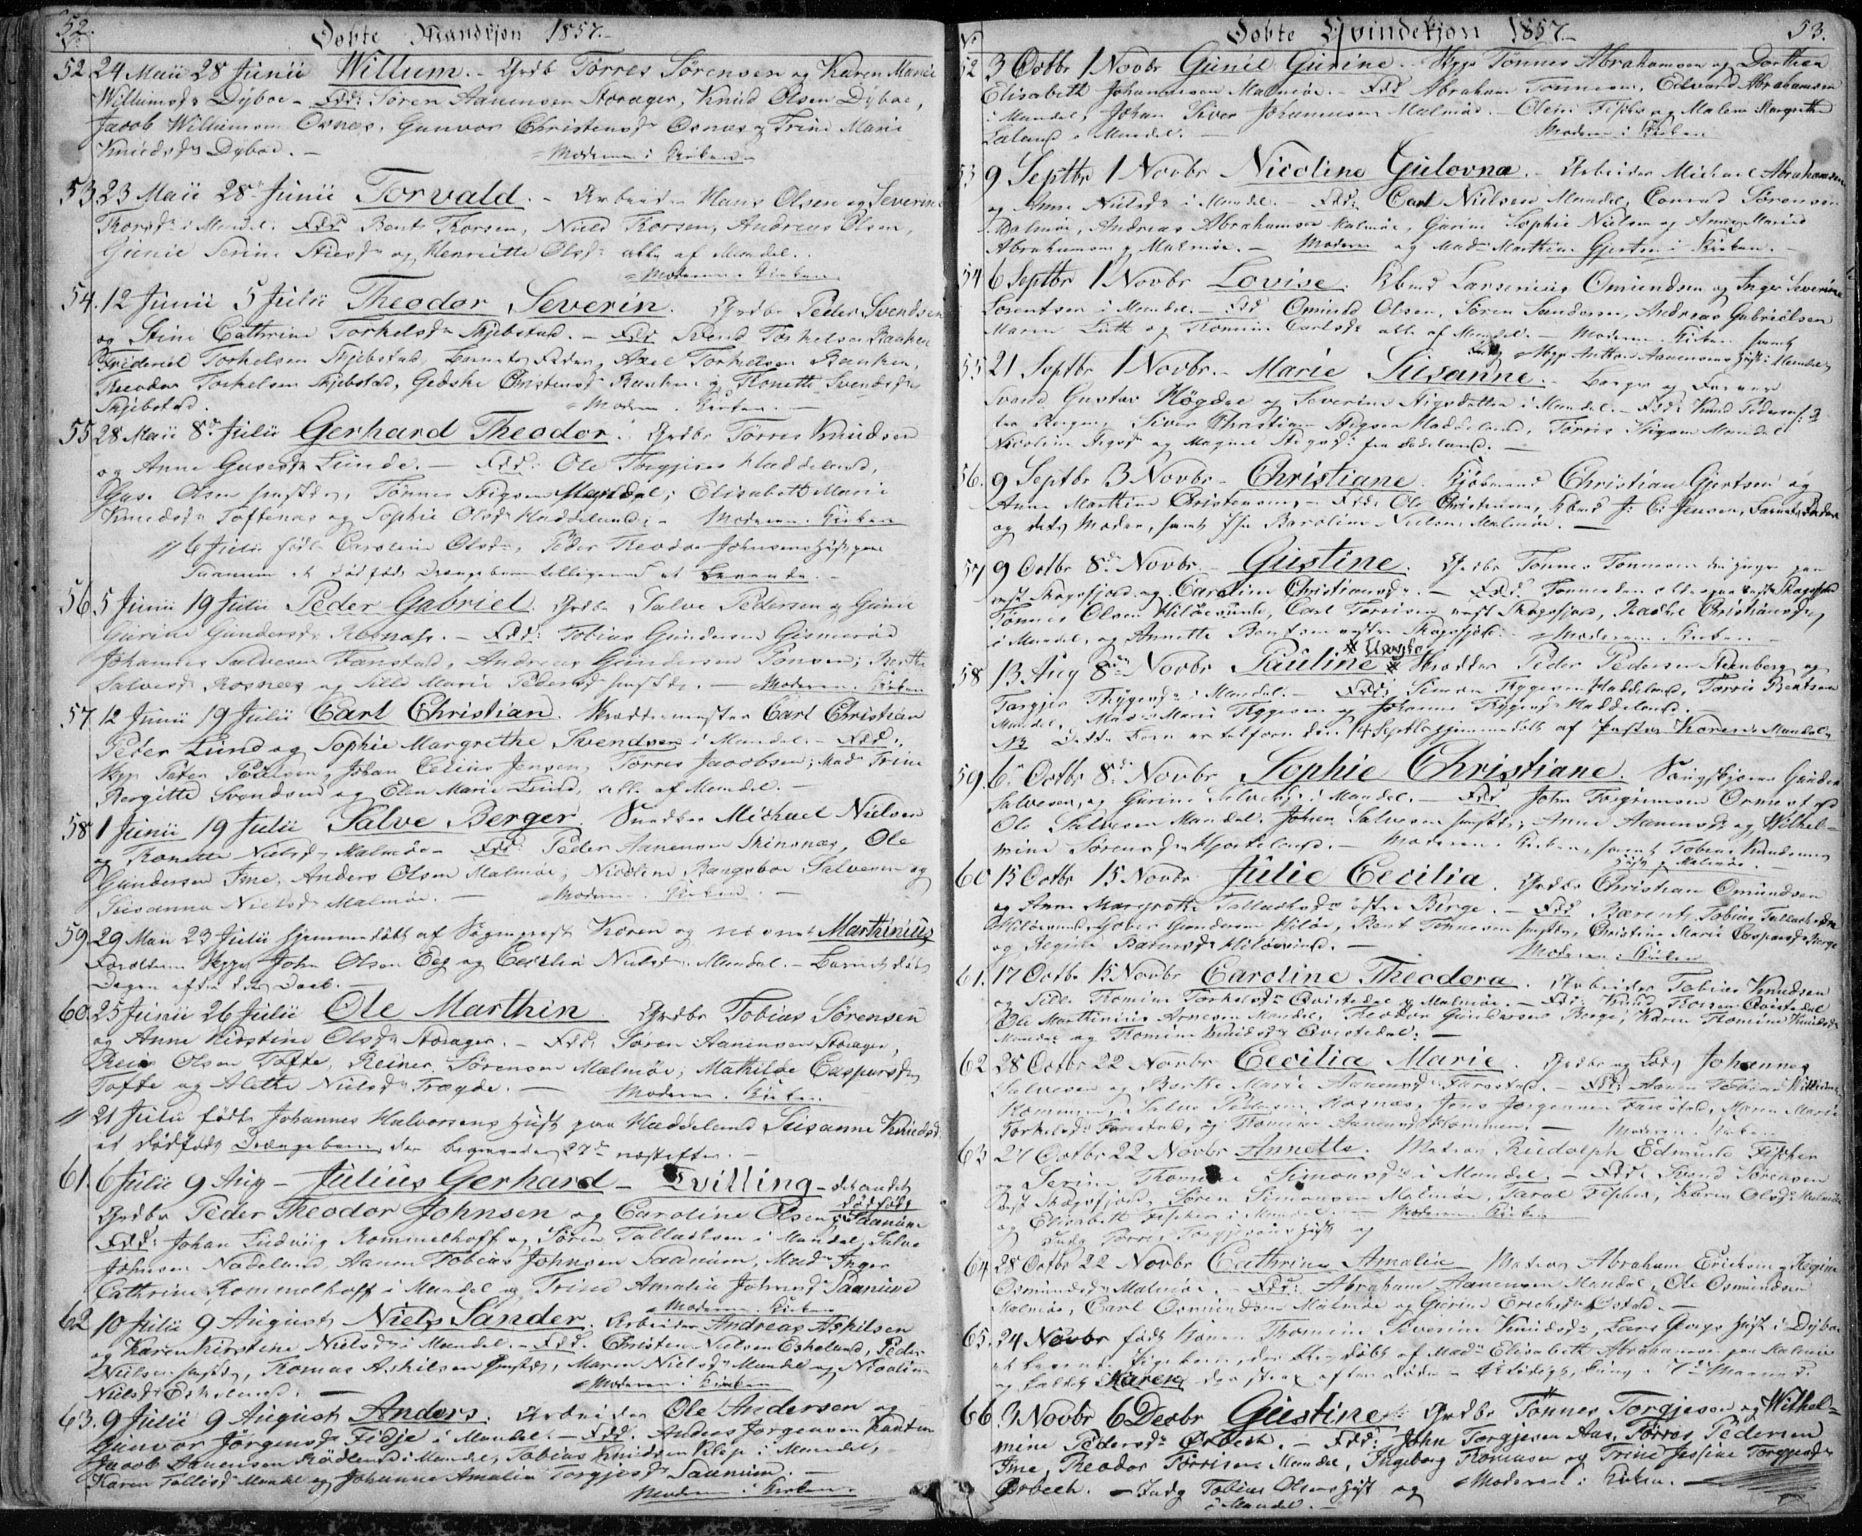 52.
Døbte Mandkjøn 1857.
52. 24 Maii 28 Junii Willum. - Grdbr Tørres Sørensen og Karen Marie
Willumsdr Dyboe - Fdd: Søren Aanensen Storager, Knud Olsen Dyboe,
Jacob Willumsen Osnes, Gunvor Christensdr Osnes og Trine Marie
Knudsdr Dyboe. - Moderen i Kirken
53. 23 Maii 28 Junii Torvald. - Arbeider Hans Olsen og Severine
Thorsdr i Mandal. Fdd Bent Thorsen, Nuld Thorsen, Andreas Olsen,
Gunie Serine og Henriette Olsdr alle af Mandal.
Moderen i Kirken
54. 12 Junii 5 Julii Theodor Severin. Grdbr Peder Svendsen
og Stine Cathrine Torkelsdr Skjebstad. - Fdd: Svend Torkelsen Baaken
Friderich Torkelsen Skjebstad, Barnets Fader, Axel Torkelsen Baaken,
Theodor Torkelsen Skjebstad, Gedske Christensdr Baaken og Tonette Svendsdr
Skjebstad. Moderen i Kirken. -
55. 28 Maii 8de Julii Gerhard Theodor. Grdbr Tørres Knudsen
og Anne Gusesdr Lunde. - Fdd: Ole Torgjersen Haddeland,
Guse Olsen sammestds, Tønnes Stigsen Mandal; Elisabeth Marie
Knudsdr Toftenæs og Sophie Olsdr Haddeland. - Moderen i Kirken
6 Julii fødte Caroline Olsdr, Peder Theodor Johnsens Hust paa
Saanum et dødfødt Drengebarn tilligemed et Levende. -
56. 5 Junii 19 Julii Peder Gabriel. Grdbr Salve Pedersen og Gunie
Gurine Gundersdr Rosnæs. - Fdd: Tobias Gundersen Gismerøe
Johannes Salvesen Farestad, Andreas Gundersen Ponsen; Berthe
Salvesdr Rosnæs og Sille Marie Pedersdr sammestds. - Moderen i Kirken
57. 12 Junii 19 Julii Carl Christian. Kræddermester Carl Christian
Peter Lund og Sophie Margrethe Svendsen i Mandal. - Fdd:
Skpr Peter Poulsen, Johan Celius Jensen, Tørres Jacobsen; Mad Trine
Bergitte Svendsen og Ellen Marie Lund, alle af Mandal. -
58. 1 Junii 19 Julii Salve Berger. Sundbr Michael Nielsen
og Tonette Nielsdr Malmøe - Fdd: Peder Aanensen Skinsnæs, Ole
Gundersen Ime, Anders Olsen Malmøe, Nicoline Bangsboe Salvesen og
Susanna Nielsdr Malmøe. - Moderen i Kirken. -
59. 29 Maii 23 Julii hjemmedøbt af Sognepræst Koren og nævnt Marthinius
Forældrene Skpr John Olsen Eeg og Cecilie Nielsdr Mandal. - Barnet døde
Dagen efter dens Daab. -
60. 25 Junii 26 Julii Ole Marthin Grdbr Tobias Sørensen
og Anne Kirstine Olsdr Storager. - Fdd: Søren Aanensen Storager,
Reie Olsen Tofte, Reiner Sørensen Malmøe; Mathilde Caspersdr
Tofte og Alethe Nielsdr Trægde. - Moderen i Kirken
21 Julii fødte Johannes Halvorsens Hust paa Haddeland Susanne Knudsdr
et dødfødt Drengebarn, der begravedes 27de næstefter. -
61. 6 Julii 9 Aug - Julius Gerhard - Tvilling - det andet
dødfødt
Grdbr Peder Theodor Johnsen og Caroline Olsen Saanum
Fdd: Johan Ludvig Rommelhoff og Søren Tallachsen i Mandal, Salve
Johnsen Nødeland, Aanen Tobias Johnsen Saanum, Mad Inger
Cathrine Rommelhoff i Mandal og Trine Amalia Johnsdr Saanum
Moderen i Kirken
62. 10 Julii 9 August Niels Sander. Arbeider Andreas Askilsen
og Karen Kirstine Nielsdr i Mandal. - Fdd. Christen Nielsen Eskeland, Peder
Nielsen sammestds, Tomas Askilsen sammestds, Maren Nielsdr Mandal og Nicoline
Nielsdr Eskeland. - Moderen i Kirken
63. 9 Julii 9 August Anders. Arbeider Ole Andersen og
Gunvor Jørgensdr Fidje i Mandal. - Fdd. Anders Jørgensen
Jacob Aanensen Rødland i Mandal, Tobias Knudsen i Mandal,
Karen Tollisdr Mandal og Johanne Amalia Torgjersdr Saanum. -
Moderen i Kirken.
Døbte Qvindekjøn 1857.
53.
52 3 Octbr 1 Novbr Gunil Gurine. Skpr Tønnes Abrahamsen og Dorthea
Elisabeth Johannesen Malmøe. - Fdd Abraham Tønnesen, Edvard Abrahamsen
i Mandal, Johan Siver Johannesen Malmøe. - Oline Fischer og Malene Margrethe
Laland i Mandal. - Moderen i Kirken
53 9 Septbr 1 Novbr Nicoline Gulovna. - Arbeider Michael Abrahamsen
og Anne Nielsdr i Mandal. - Fdd: Carl Nielsen Mandal, Conrad Sørensen
Malmøe, Andreas Abrahamsen Malmøe, Gurine Sophie Nielsen og Anne Marie
Abrahamsen Malmøe. - Moderen og Mad Marthine Gjertsen i Kirken. -
54 6 Septbr 1 Novbr Lovise. Kbmd Larsenius Omundsen og Inger Severine
Lorentsen i Mandal. - Fdd Omund Olsen, Søren Sandersen, Andreas Gabrielsen
Maren Lett og Tomine Carlsdr alle af Mandal. - Moderen i Kirken samt
Skpr Anthon Aanensens Hust i Mandal
55 21 Septbr 1 Novbr. - Marie Susanne. - Borger og Farver
Svend Gustav Høgdøe og Severine Stigsdatter i Mandal. - Fdd: Knud Pedersen
Siver Christian Stigsen Haddeland, Tørris Stigsen Mandal
Nicoline Stigsdr og Magine Stigsdr fra Haddeland. -
56. 9 Septbr 3 Novbr - Christiane. Kjøbmand Christian Gjertsen og
Anne Marthine Christensen. - Fdd: Ole Christensen, Kbmd J. C. Jensen, Barnets Fader
og dets Moder, samt Karoline Nielsen Malmøe. -
57 9 Octbr 8de Novbr. - Gustine. Grdbr Tønnes Tønnesen den yngre paa
vest Skogsfjord og Caroline Christiansdr. - Fdd. Tønnes den ældre paa vest Skogsfjord
Tønnes Olsen Hilløesund, Carl Tørrisen vest Skogsfjord, Rachel Christiansdr
i Mandal, og Annette Bentsen vestre Skogsfjord. - Moderen i Kirken -
Uægte
58 13 Aug 8de Novbr Pauline Skrædder Peder Pedersen Steenberg og
Torgjer Thygesdr i Mandal. - Fdd: Simon Tygesen Haddeland, Tørris Bentsen
Mandal, Marie Tygesen og Johanne Tygesdr Haddeland. -
NB Dette Barn er tilforn den 14 Septbr hjemmedøbt af Pastor Koren i Mandal
59. 6 Octbr 8de Novbr Sophie Christiane. Gunder
Salvesen, og Gurine Salvesdr i Mandal. - Fdd John Torgrimsen Ormestad
Ole Salvesen Mandal, Johan Salvesen sammestds, Anne Aanensdr og Wilhel=
mine Sørensdr Hjorteland. - Moderen i Kirken, samt Tobias Knudsens
Hust Malmøe
60 15 Octbr 15 Novbr Julie Cecilia. Grdbr Christian Omundsen
og Anne Margrethe Tallachsdr øvre Berge. - Fdd Bærent Tobias Tallachsen
Hilløesund, Gabriel Gundersen Hilløe, Bent Tønnesen sammestds, Christine Marie Caspersdr Berge
og Regine Bærntsdr Hilløesund. - Moderen i Kirken
61. 17 Octbr 15 Novbr Caroline Theodora. Arbeider Tobias Knudsen
og Sille Tomine Torkelsdr Qvistedal Malmøe. - Fdd: Knud Thorsen Qvistedal
Ole Marthinius Arnesen Mandal, Theodor Gundersen Berge, Karen Tomine Knudsdr
Mandal og Tomine Knudsdr Qvistedal. -
62 28 Octbr 22 Novbr Cecilia Marie. Grdbr og Lods Johannes
Salvesen og Berthe Marie Aanensdr Farestad. - Fdd: Aanen Tobias Willumsen
Kommen, Salve Pedersen Rosnæs, Jens Jørgensen Farestad, Maren Marie
Torkelsdr Farestad, og Tomine Aanensdr Kommen. - Moderen i Kirken
63 27 Octbr 22 Novbr Annette. Matros Rudolph Edmund Fischer
og Serine Thomine Simonsdr i Mandal. - Fdd: Svend Sørensen
Vest Skogsfjord, Søren Simonsen Malmøe, Taral Fischer, Karen Olsdr Malmøe
og Elisabeth Fischer i Mandal. - Moderen i Kirken
Indg Tørris Torgjersens Hust og
64 28 Octbr 22 Novbr Cathrine Amalia Matros Abraham Erichsen og Regine
Osmundsdr Malmøe. - Fdd: Abraham Aanensen Mandal, Ole Osmundsen
Malmøe, Carl Osmundsen Malmøe og Gurine Erichsdr Østad. -
65. 24 Novbr fødte Konen Thomine Severine Knudsdr, Lars Hust i Dyboe
et levende Pigebarn, der blev døbt af Mad Elisabeth Abrahamsen paa Malmøe
og kaldet Karen, der strax efter døde -
66. 3 Novbr 6 Decbr Gustine. Grdbr Tønnes Torgjesen og Wilhel=
mine Pedersdr Ørbech. - Fdd: John Torgjesen Aas, Tørres Pedersen
Ime, Theodor Tørrisen Mandal, Ingeborg Tomesen og Trine Jessine Torgjesdr
Ørbech. - Indg Tobias Olsens Hust og Moderen i Kirken. -
i Mandal. -